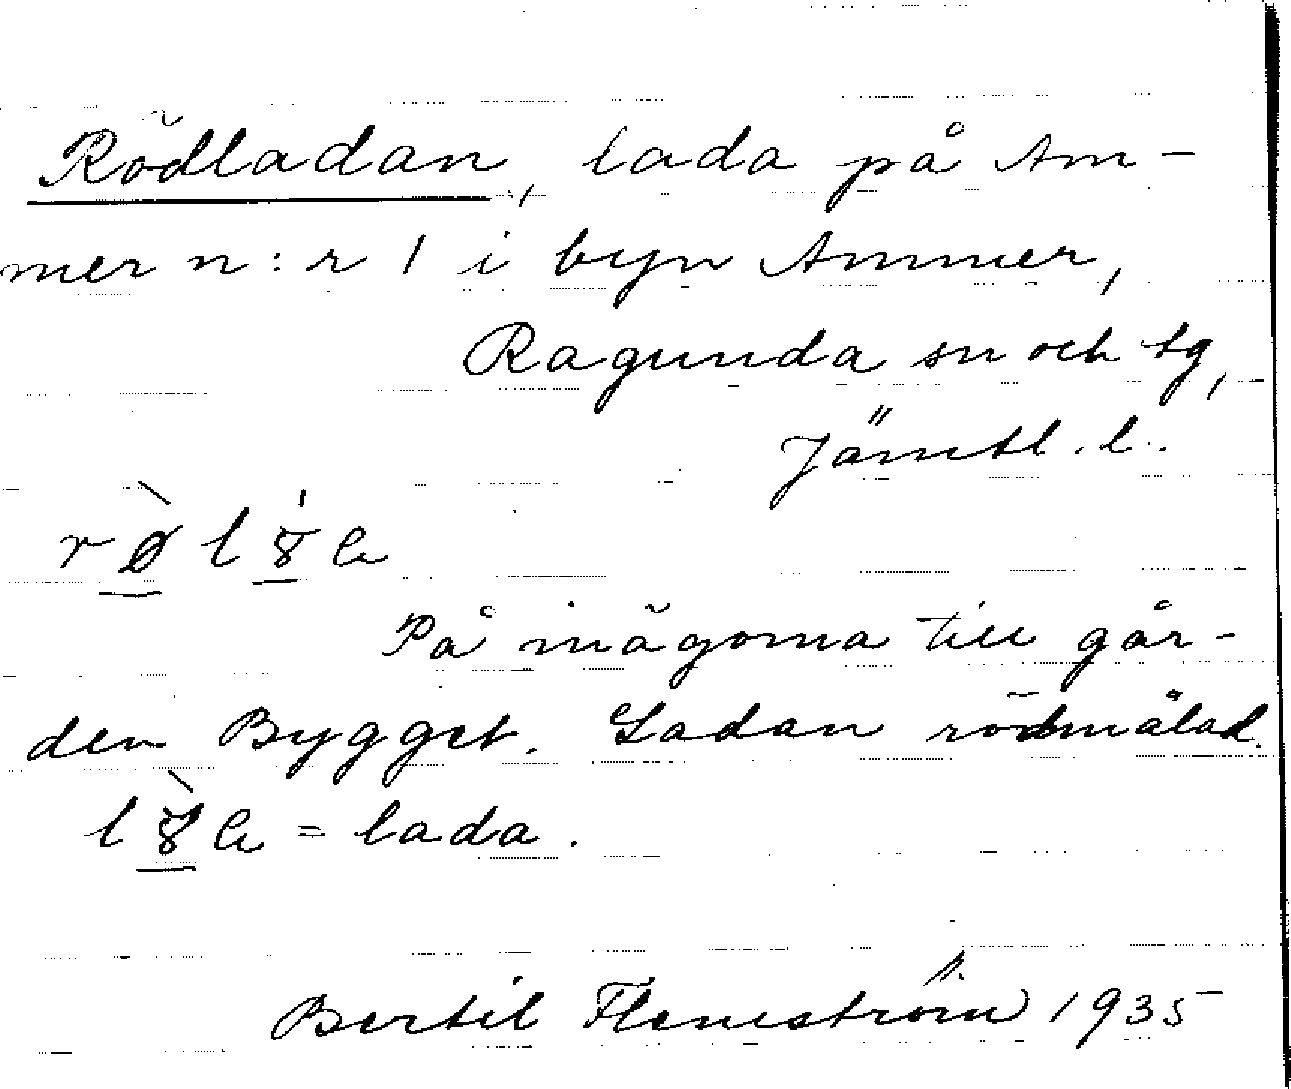 Rödladan, lada på Am-
mer n:r 1 i byn Ammer,
Ragunda sn och tg,
Jämtl. l.
På inägorna till går-
den Bygget. Ladan rödmålad.
= lada.
Bertil Flemström 1935